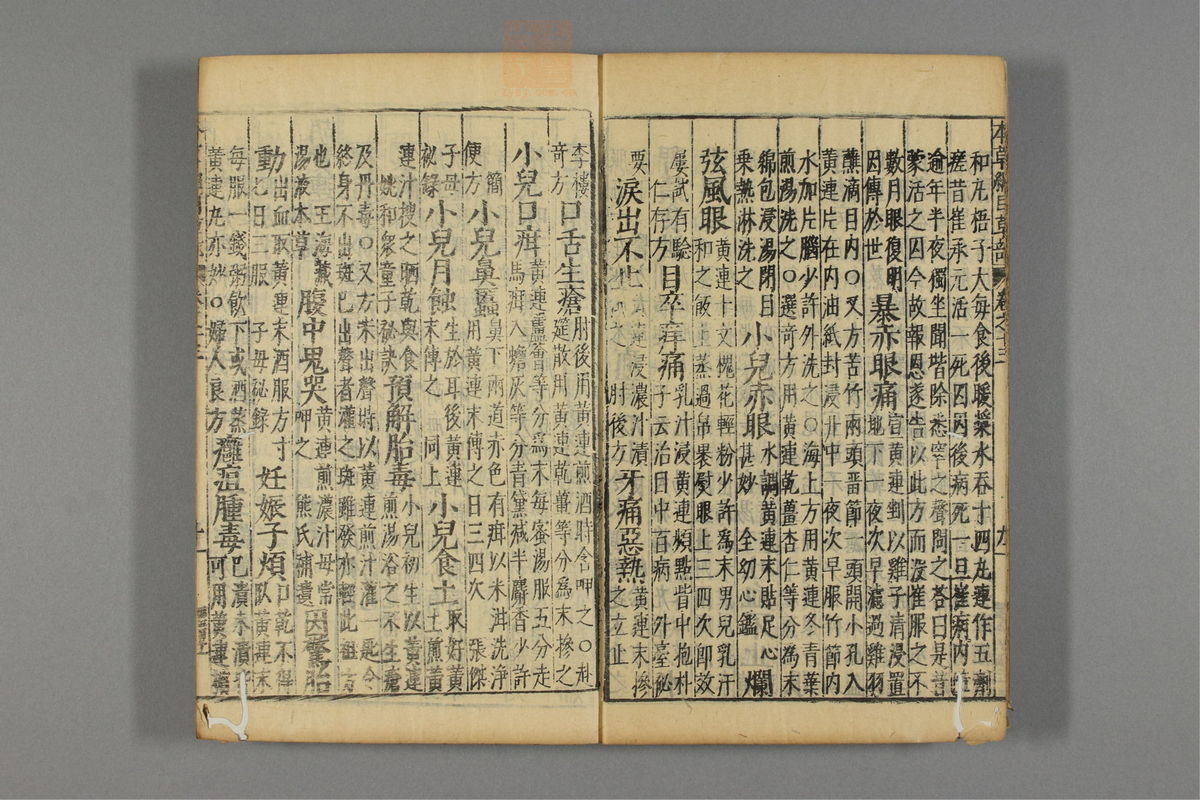 本草綱目草部 卷之十三
和丸梧子大每食後暖漿水吞十四丸連作五劑
瘥昔崔承元活一死囚囚後病死一旦崔病內障
逾年半夜獨坐聞堦除悉窣之聲問之荅曰是昔
蒙活之囚今故報恩遂告以此方而沒崔服之不
數月眼復明
因傳於世
暴赤眼痛
宣黃連剉以雞子清浸置
地下一夜次早濾過雞羽
蘸滴目內○又方苦竹兩頭畱節一頭開小孔入
黃連片在內油紙封浸井中一夜次早服竹節內
水加片腦少許外洗之○海上方用黃連冬青葉
煎湯洗之○選奇方用黃連乾薑杏仁等分爲末
綿包浸湯閉目
乗熱淋洗之
小兒赤眼
水調黃連末貼足心
甚妙 全幼心鑑
爛
弦風眼
黃連十文槐花輕粉少許爲末男兒乳汁
和之飯上蒸過帛裹熨眼上三四次卽效
屢試有驗
仁存方
目卒痒痛
乳汁浸黃連頻點眥中抱朴
子云治目中百病 外臺秘
要
淚出不止
黃連浸濃汁漬
拭之 肘後方
牙痛惡熱
黃連末摻
之立止
李樓
奇方
口舌生瘡
肘後用黃連煎酒時含呷之○赴
筵散用黃連乾薑等分爲末摻之
小兒口疳
黃連蘆薈等分爲末每蜜湯服五分走
馬疳入蟾灰等分青黛減半麝香少許
簡
便方
小兒鼻䘌
鼻下兩道赤色有疳以米泔洗淨
用黃連末傅之日三四次 張傑
子母
秘錄
小兒月蝕
生於耳後黃連
末傅之 同上
小兒食土
取好黃
土煎黃
連汁搜之晒乾與食
姚和衆童子秘訣
預解胎毒
小兒初生以黃連
煎湯浴之不生瘡
及丹毒○又方未出聲時以黃連煎汁灌一匙令
終身不出斑已出聲者灌之斑雖發亦輕此祖方
也王海藏
湯液本草
腹中鬼哭
黃連煎濃汁母常
呷之 熊氏補遺
因驚胎
動
出血取黃連末酒服方寸
匕日三服 子母秘錄
妊娠子煩
口乾不得
臥黃連末
每服一錢粥飲下或酒蒸
黃連丸亦妙○婦人良方
癰疽腫毒
已潰未潰皆
可用黃連檳